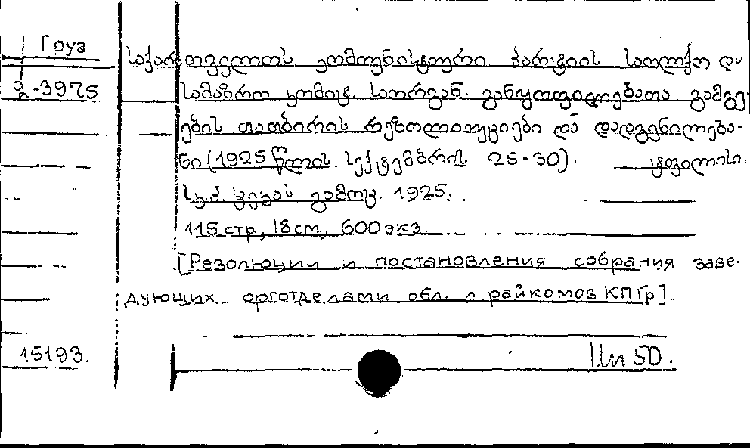 Груз
2-3975
საქართველოს კომუნისტური პარტიის საოლქო და
სამაზრო კომიტ. საორგან. განყოფილებათა გამგე-
ების თათბირის რეზოლიუციები და დადგენილება-
ნი (1925 წლის სექტემბრის 25-30). ტფილისი.
ს.კ.პ. ცეკას გამოც. 1925.
115 стр, 18 см, 600 экз
[Резолюции и постановления собрания заве-
дующих орготделами обл. и райкомов КПГр]
15193.
Цп 50.